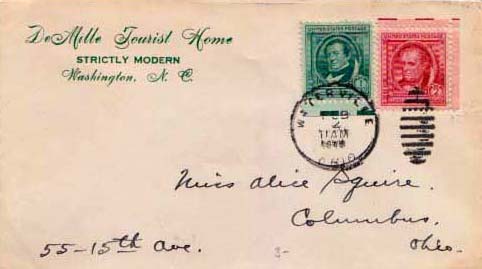 DeMille Tourist Home
STRICTLY MODERN
Washington, N. C.
UNITED STATES POSTAGE
UNITED STATES POSTAGE
WATERVILLE
FEB
2
11AM
OHIO
Miss Alice Squire.
Columbus,
55-15th Ave.
Ohio.